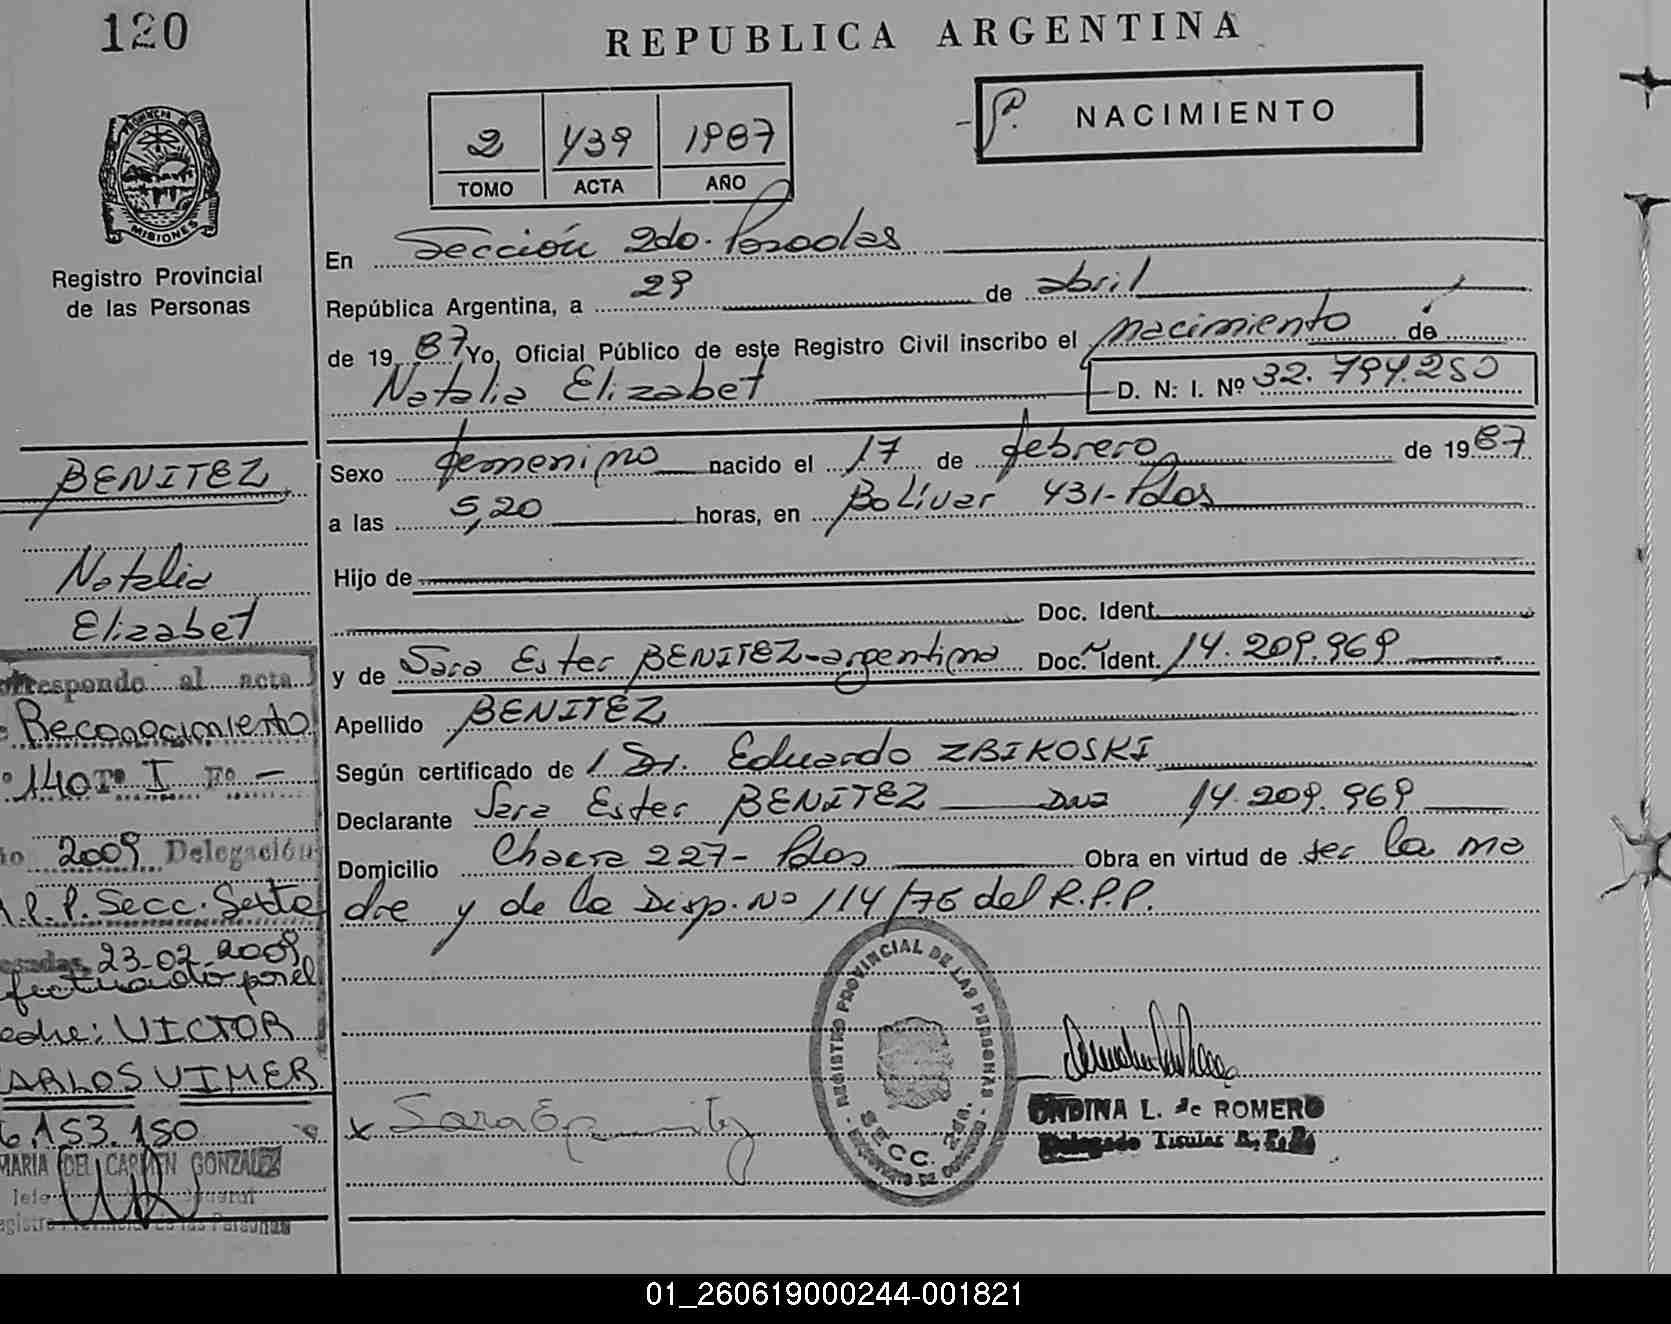 120
REPUBLICA ARGENTINA
NACIMIENTO
2 439 1987
TOMO ACTA AÑO
PROVINCIA DE
MISIONES
Registro Provincial
de las Personas
En Sección 2do. Posadas
República Argentina, a 29 de abril
de 1987 Yo, Oficial Público de este Registro Civil inscribo el nacimiento de
Natalia Elizabet D. N. I. Nº 32.794.250
Sexo femenino nacido el 17 de febrero de 1987
a las 5,20 horas, en Bolívar 431-Pdas
Hijo de
Doc. Ident.
y de Sara Ester BENITEZ-argentina Doc. Ident. 14.209.969
Apellido BENITEZ
Según certificado de Dr. Eduardo ZBIKOSKI
Declarante Sara Ester BENITEZ DNI 14.209.969
Domicilio Chacra 227- Pdas Obra en virtud de ser la ma
dre y de la Disp. Nº 114/76 del R.P.P.
BENITEZ
Natalia
Elizabet
corresponde al acta
Reconocimiento
140 Tº I Fº -
2009 Delegación
R.P.P. Secc. Sexta
Posadas 23-02-2009
efectuado por el
padre: VICTOR
CARLOS VIMER
6.153.150
MARIA DEL CARMEN GONZALEZ
Registro Provincial de las Personas
REGISTRO PROVINCIAL DE LAS PERSONAS
SECC. 2da.
x Sara E
ONDINA L. de ROMERO
Delegado Titular
01_260619000244-001821